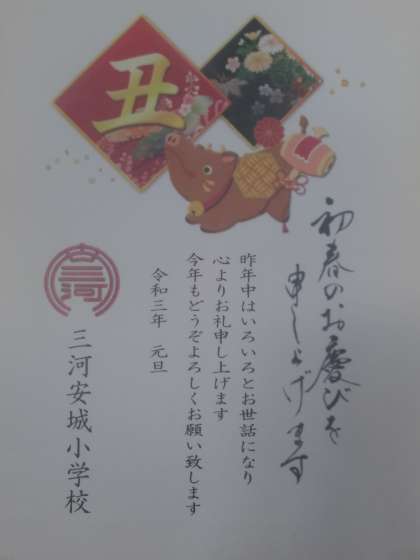 丑
初春のお慶びを
申し上げます
昨年中はいろいろとお世話になり
心よりお礼申し上げます
今年もどうぞよろしくお願い致します
令和三年 元旦
三河安城小学校